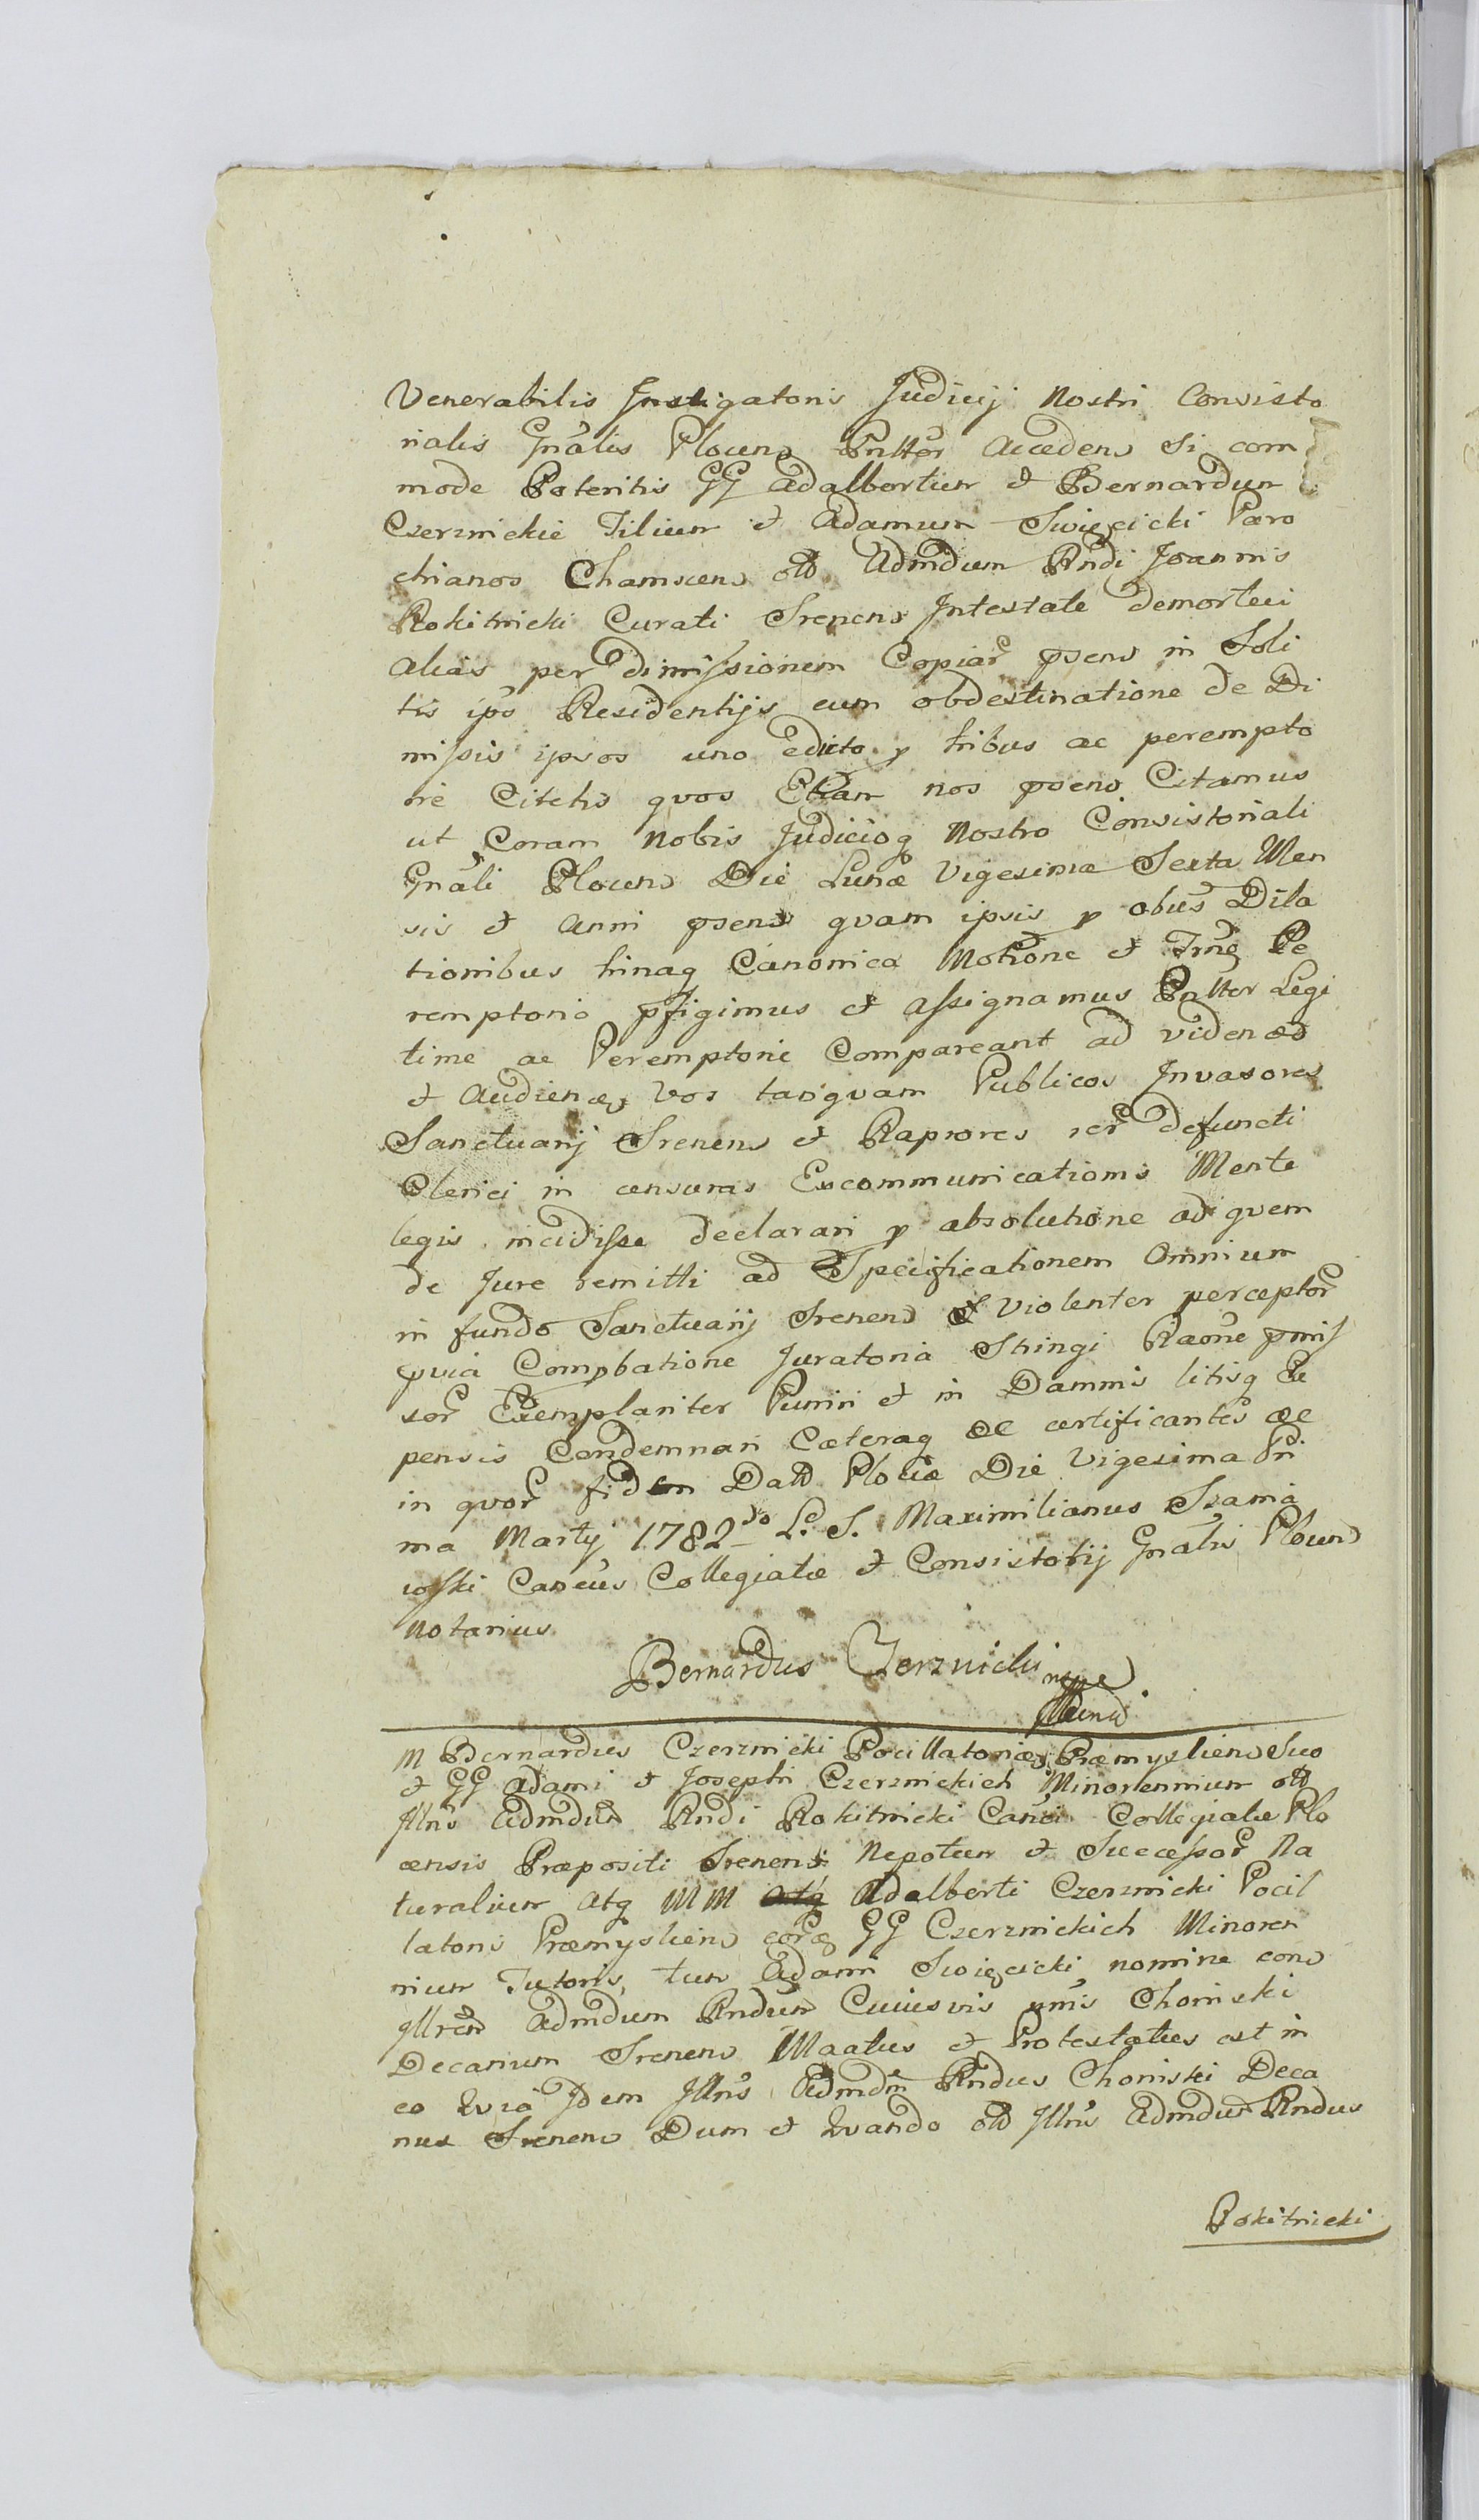 Venerabilis Instigatoris Judicij Nostri Consisto
rialis Gnâlis Plocens Pntter Accedens Si com
mode Poteritis GG Adalbertum et Bernardum
Czerznickie Filium et Adamum Swięcicki Paro
chianos Chamscens olt Admdum Rndi Joannis
Rokitnicki Curati Srenens Intestate demortui
alias per dimissionem Copiar psens in Soli
tis ips Residentijs cum obdestinatione de Di
missis ipsos uno edicto p tribus ac perempto
rie Citetis quos Etiam nos psens Citamus
ut Coram Nobis Judicioq Nostro Consistoriali
Gnâli Plocens Die Lunæ Vigesima Sexta Men
sis et Anni psens quam ipsis p obus Dila
tionibus trinaq Canonica Motione et Tmq Pe
remptorio pfigimus et assignamus Pntter Legi
time ac Peremptorie Compareant ad videnđ
et Audienđ Vos tanquam Publicos Invasores
Sanctuarij Srenens et Raptores rer defuncti
Clerici in censuras Excommunicationis Mente
legis incidisse declarari p absolutione ad quem
de Jure remitti ad Specificationem Omnium
in fundo Sanctuarij Srenens et violenter perceptor
pvia Compbatione Juratoria Stringi Raone pmis
sor Exemplariter Puniri et in Damnis litisq Ex
pensis Condemnari Cæteraq ac certificantes ac
in quor fidem Datt Plociæ Die Vigesima Pri
ma Martij 1782do L. S. Maximilianus Szania
wski Cancus Collegiatæ et Consistorij Gnâlis Plocens
Notarius
Bernardus Czerznicki mppe
M Bernardus Czerznicki Pocillatorides Præmysliens Suo
et GG Adami et Josephi Czerznickich Minorennium olt
Illris Admdum Rndi Rokitnicki Canci Collegiatæ Plo
censis Præpositi Srenens Nepotum et Successor Na
turalium atq MM atq Adalberti Czerznicki Pocil
latoris Præmysliens eorq GG Czerznickich Minoren
nium Tutoris, tum Adami Swięcicki nomine cons
Illrem Admdum Rndum Cuiusvis nmis Choinski
Decanum Srenens Maatus et Protestatus est in
eo Quia Idem Illris Admdm Rndus Choinski Deca
nus Srenens Dum et Quando olt Illris Admdum Rndus
Rokitnicki